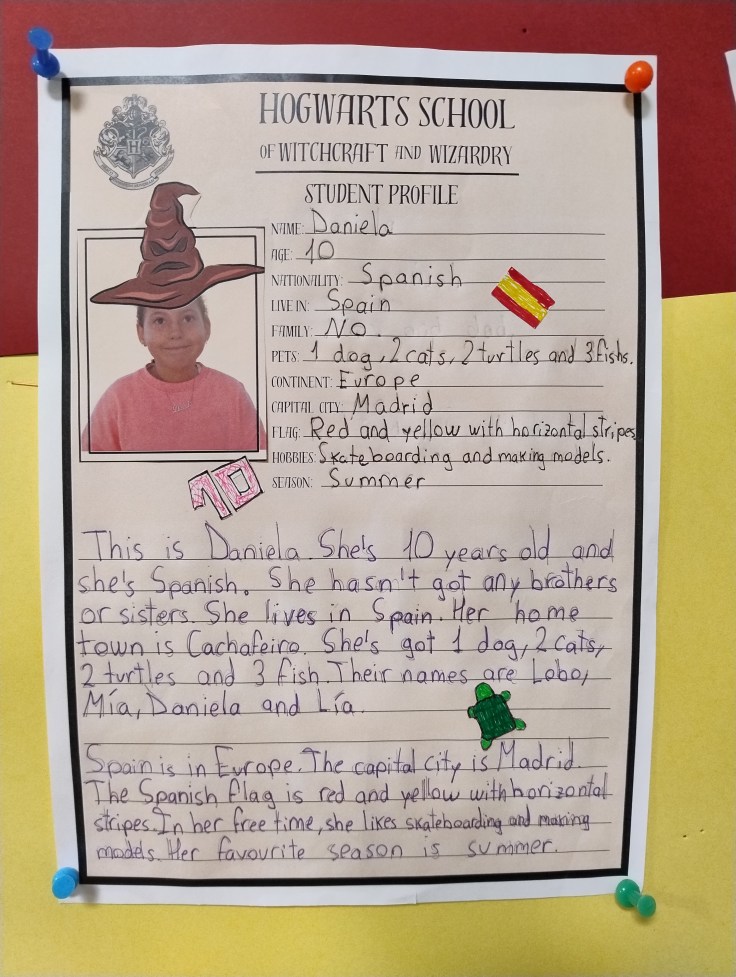 HOGWARTS SCHOOL
OF WITCHCRAFT AND WIZARDRY
STUDENT PROFILE
NAME: Daniela
AGE: 10
NATIONALITY: Spanish
LIVE IN: Spain
FAMILY: NO.
PETS: 1 dog, 2 cats, 2 turtles and 3 fishs.
CONTINENT: Europe
CAPITAL CITY: Madrid
FLAG: Red and yellow with horizontal stripes
HOBBIES: Skateboarding and making models.
SEASON: Summer
10
This is Daniela. She's 10 years old and
she's Spanish. She hasn't got any brothers
or sisters. She lives in Spain. Her home
town is Cachafeiro. She's got 1 dog, 2 cats,
2 turtles and 3 fish. Their names are Lobo,
Mía, Daniela and Lía.
Spain is in Europe. The capital city is Madrid.
The Spanish flag is red and yellow with horizontal
stripes. In her free time, she likes skateboarding and making
models. Her favourite season is summer.